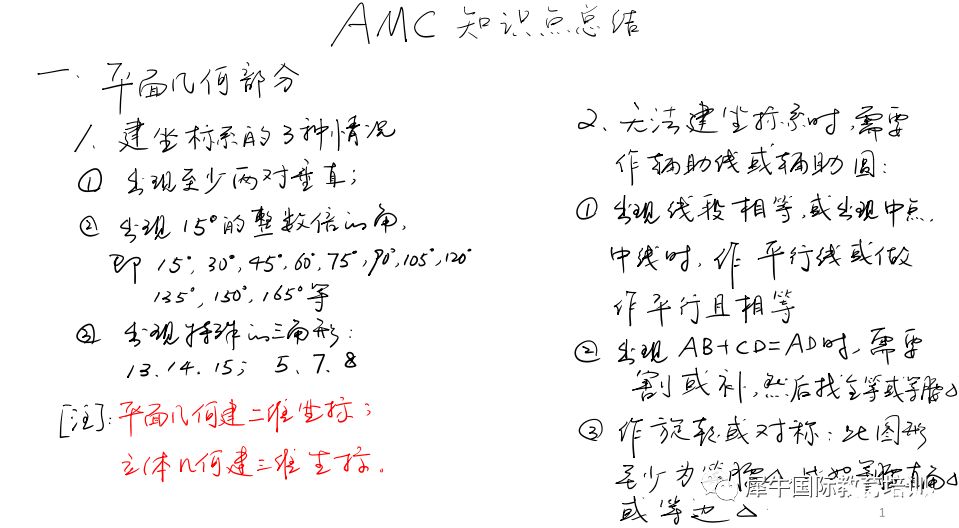 AMC 知识点总结
一. 平面几何部分
1. 建坐标系的3种情况
① 出现至少两对垂直;
② 出现15°的整数倍的角,
即 15°, 30°, 45°, 60°, 75°, 90°, 105°, 120°
135°, 150°, 165°等
③ 出现特殊的三角形:
13. 14. 15; 5. 7. 8
[注]: 平面几何建二维坐标;
立体几何建三维坐标.
2. 无法建坐标系时, 需要
作辅助线或辅助圆:
① 出现线段相等, 或出现中点.
中线时, 作平行线或做
作平行且相等
② 出现 AB+CD=AD时, 需要
割或补, 然后找全等或等腰△
③ 作旋转或对称: 此图形
至少为等腰△ 比如等腰直角△
或等边△
犀牛国际教育培训
1